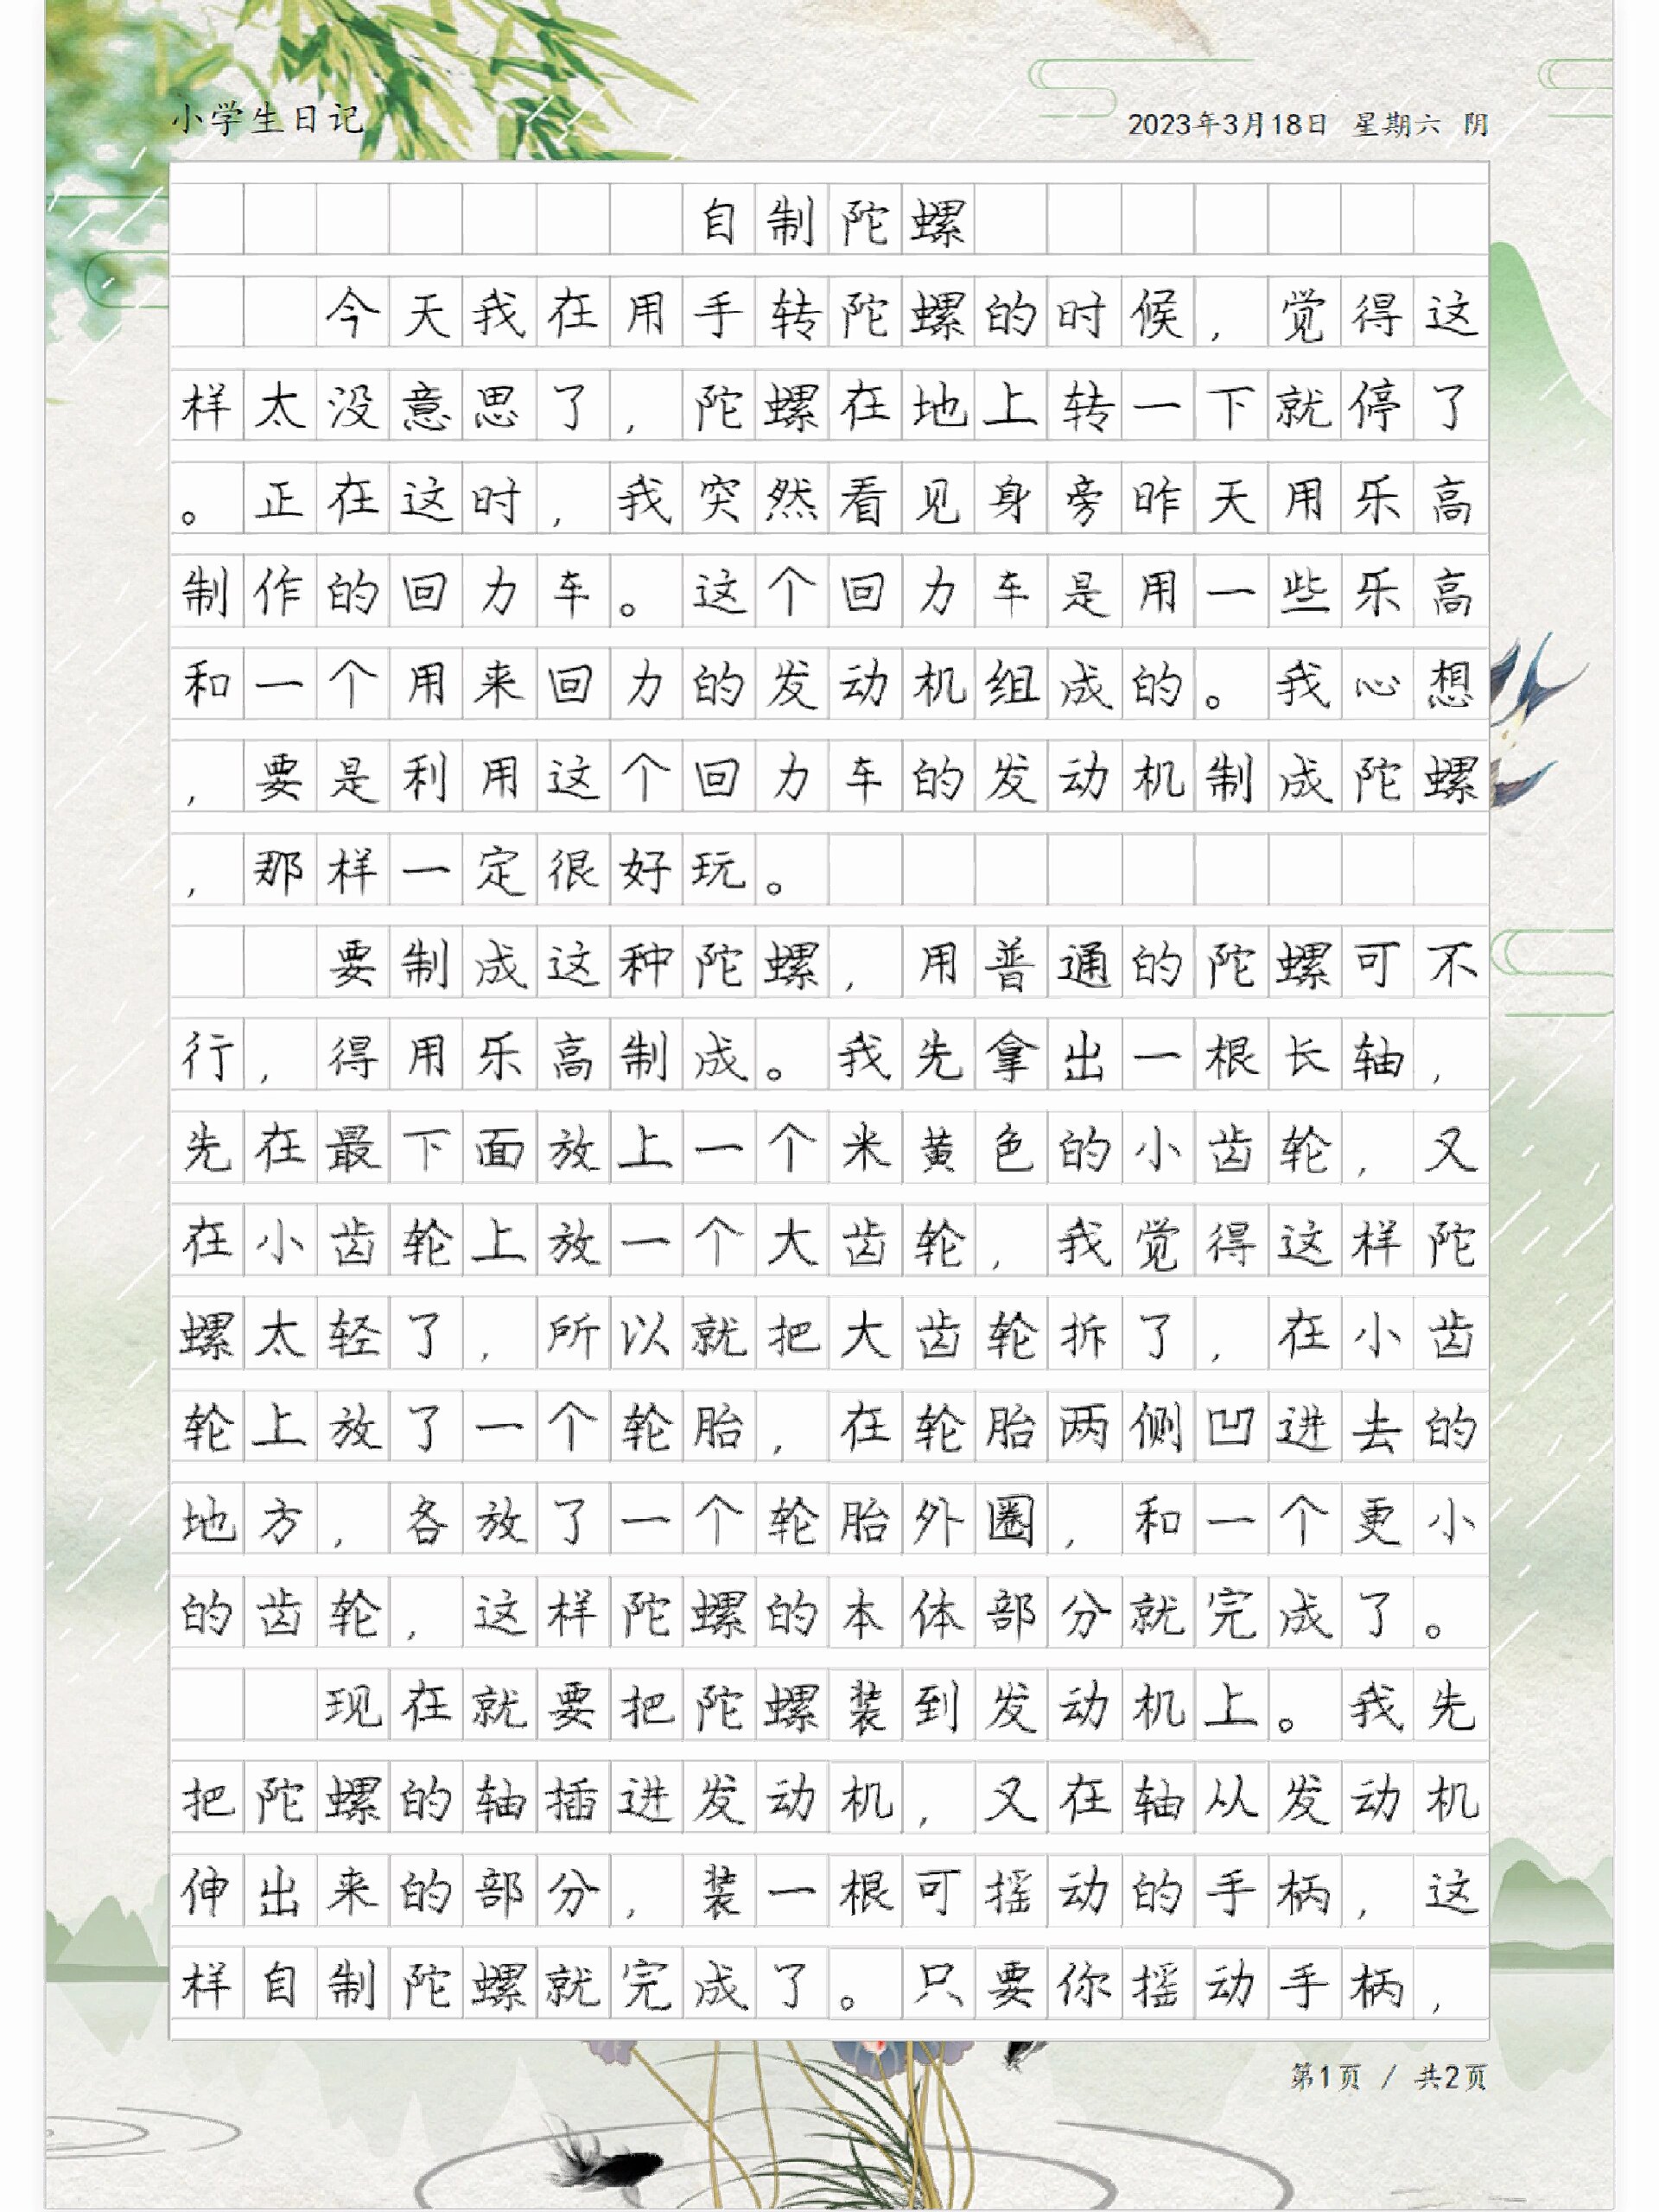 小学生日记
2023年3月18日 星期六 阴
自制陀螺
今天我在用手转陀螺的时候，觉得这
样太没意思了，陀螺在地上转一下就停了
。正在这时，我突然看见身旁昨天用乐高
制作的回力车。这个回力车是用一些乐高
和一个用来回力的发动机组成的。我心想
，要是利用这个回力车的发动机制成陀螺
，那样一定很好玩。
要制成这种陀螺，用普通的陀螺可不
行，得用乐高制成。我先拿出一根长轴，
先在最下面放上一个米黄色的小齿轮，又
在小齿轮上放一个大齿轮，我觉得这样陀
螺太轻了，所以就把大齿轮拆了，在小齿
轮上放了一个轮胎，在轮胎两侧凹进去的
地方，各放了一个轮胎外圈，和一个更小
的齿轮，这样陀螺的本体部分就完成了。
现在就要把陀螺装到发动机上。我先
把陀螺的轴插进发动机，又在轴从发动机
伸出来的部分，装一根可摇动的手柄，这
样自制陀螺就完成了。只要你摇动手柄，
第1页 / 共2页